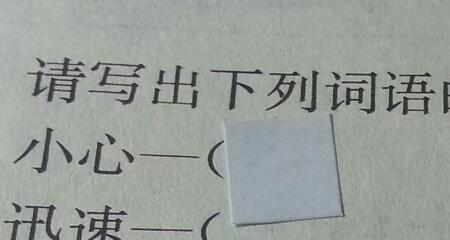 请写出下列词语
小心—(
迅速—(